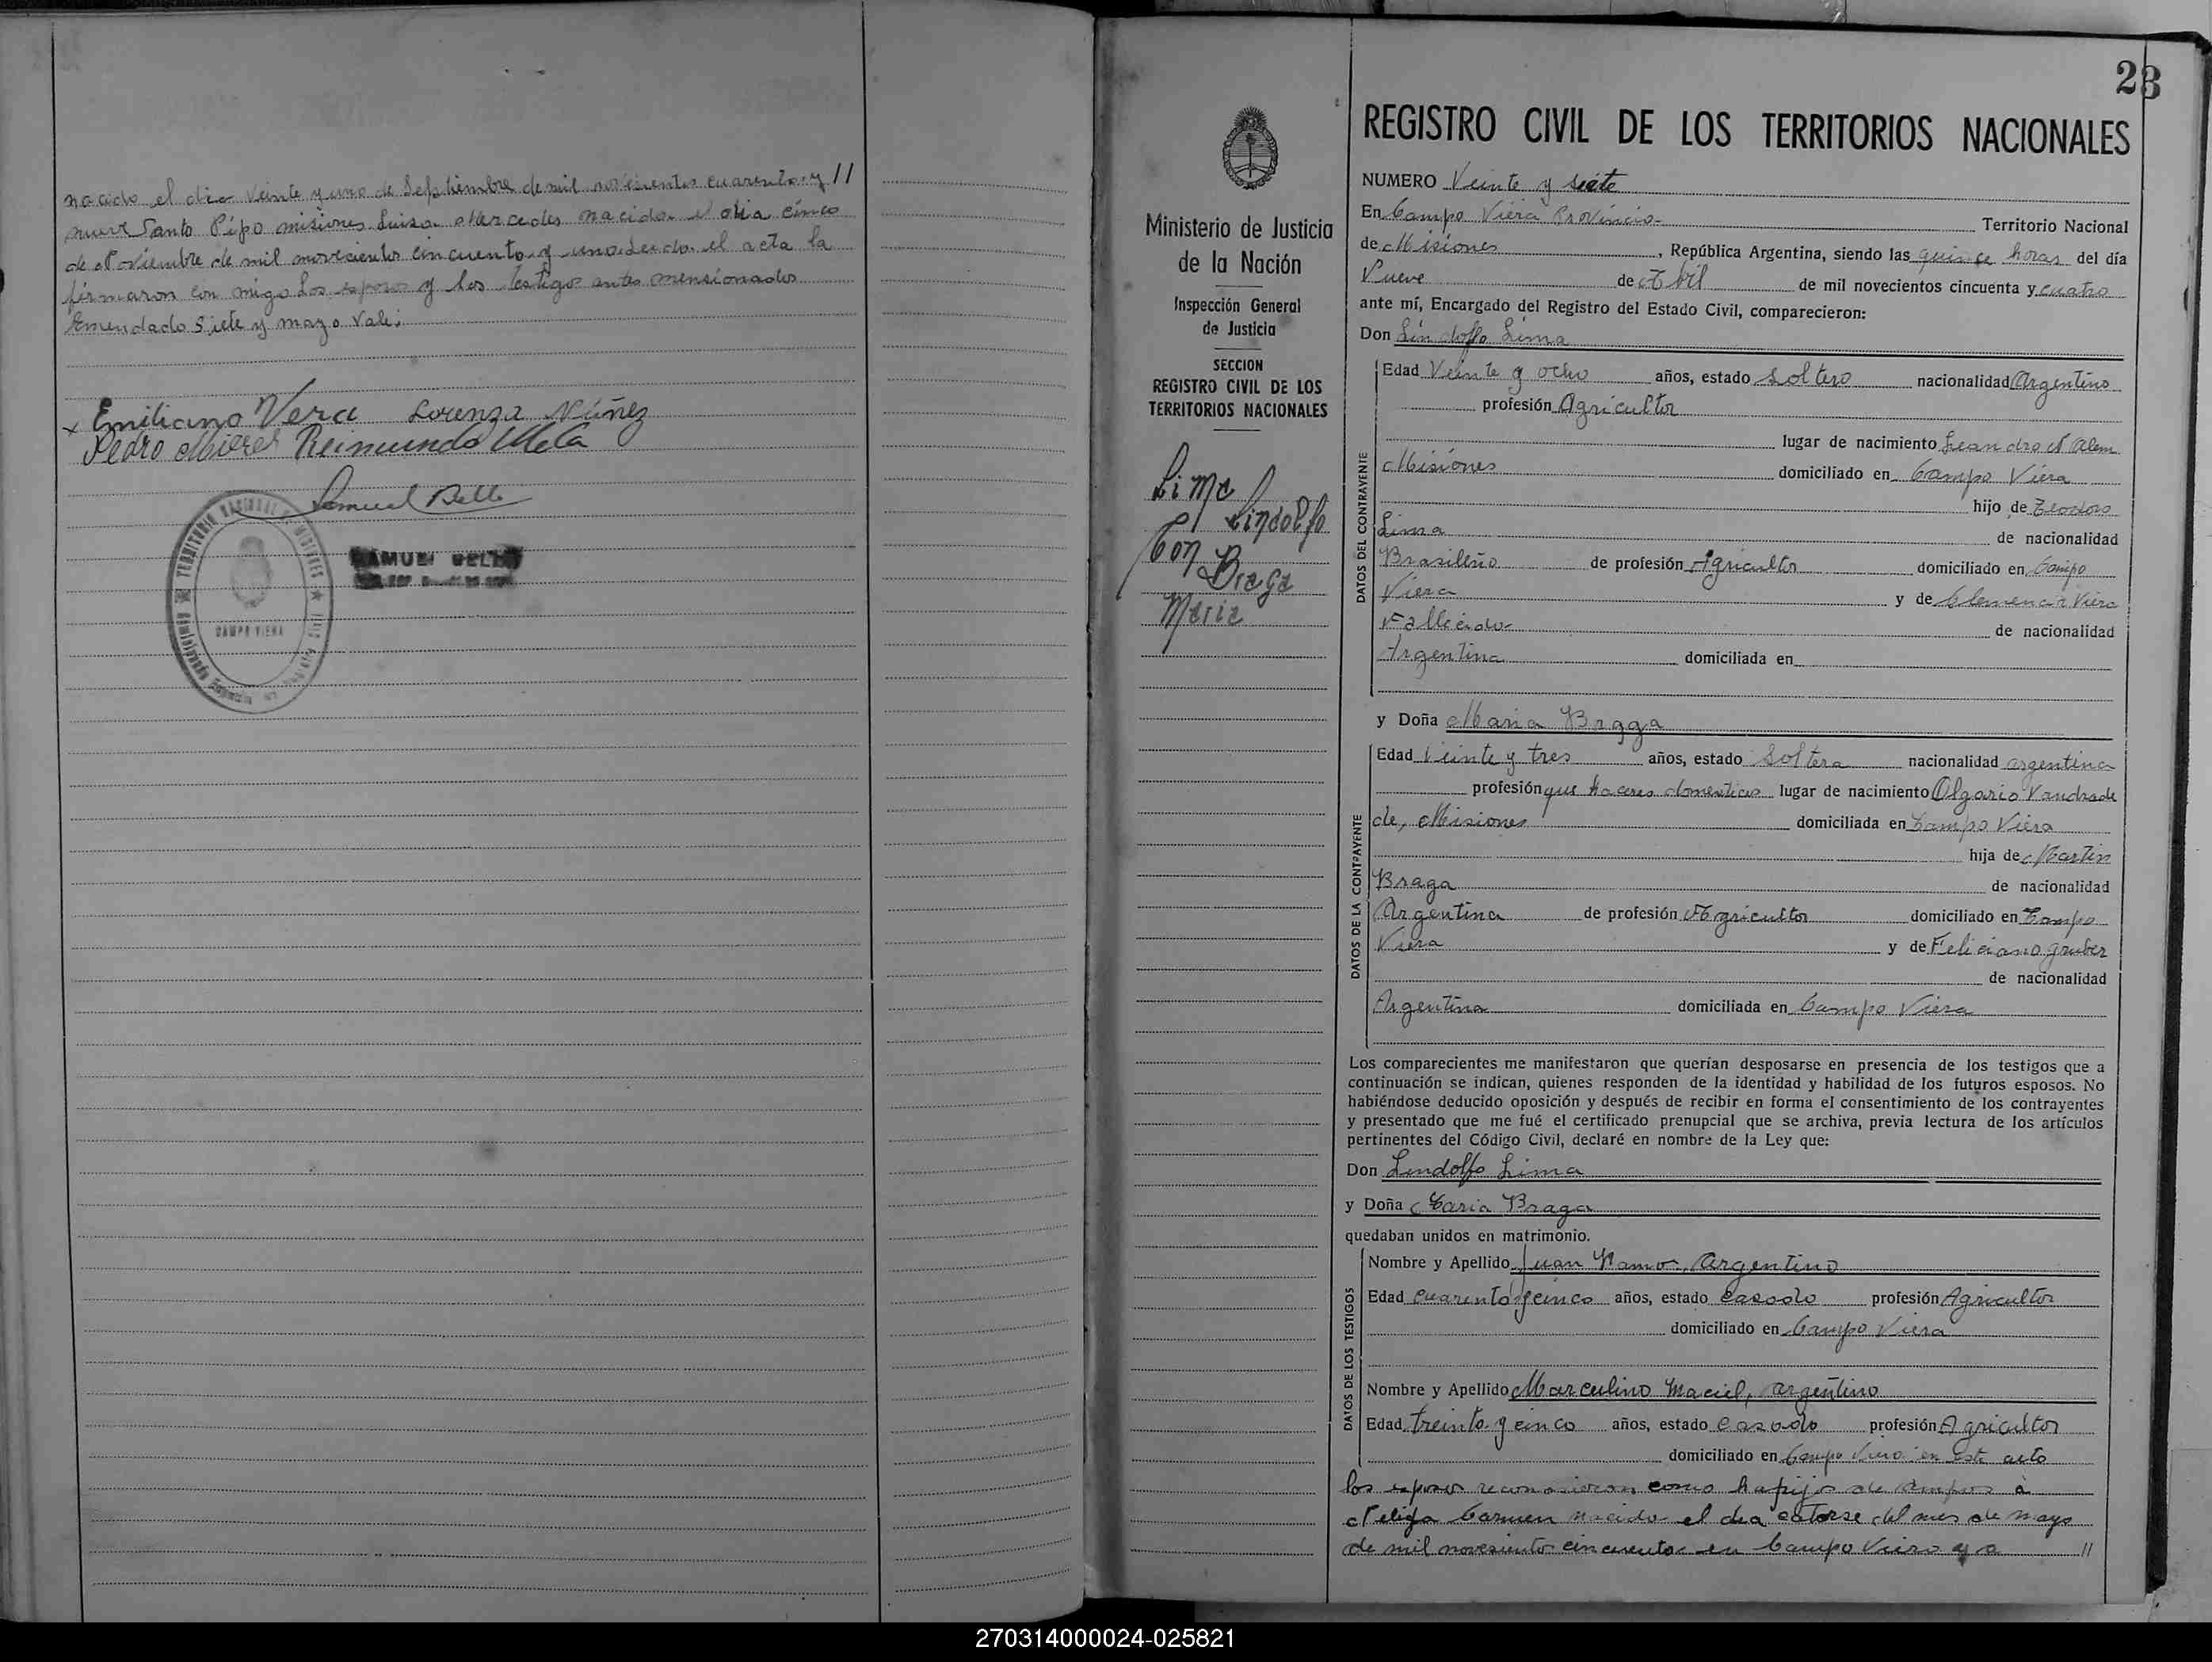 nacido el dia Veinte y uno de Septiembre de mil novesientos cuarenta y //
nueve Santo Pipo misiones. Luisa Mercedes nacida el dia cinco
de Noviembre de mil movesientos cincuenta y uno. Leida el acta la
firmaron con migo los esposos y los testigos antes mensionados
Emendado Siete y mayo Vale:
x Emiliano Vera Lorenza Núñez
Pedro Reimundo
Samuel Bello
TERRITORIO NACIONAL MISIONES
CAMPO VIERA
SAMUEL BELLO
23
REGISTRO CIVIL DE LOS TERRITORIOS NACIONALES
Ministerio de Justicia
de la Nación
Inspección General
de Justicia
SECCION
REGISTRO CIVIL DE LOS
TERRITORIOS NACIONALES
Lima
Lindolfo
Con
Braga
Maria
NUMERO Veinte y siete
En Campo Viera Provincia Territorio Nacional
de Misiones, República Argentina, siendo las quinse horas del día
Nueve de Abil de mil novecientos cincuenta y cuatro
ante mí, Encargado del Registro del Estado Civil, comparecieron:
Don Lindolfo Lima
DATOS DEL CONTRAYENTE
Edad Veinte y ocho años, estado soltero nacionalidad Argentino
profesión Agricultor
lugar de nacimiento Leandro N Alem
Misiones domiciliado en Campo Viera
hijo de Teodoro
Lima de nacionalidad
Brasileño de profesión Agricultor domiciliado en Campo
Viera y de Clemencia Viera
Fallecida de nacionalidad
Argentina domiciliada en
y Doña Maria Braga
DATOS DE LA CONTRAYENTE
Edad Veinte y tres años, estado Soltera nacionalidad argentina
profesión que haceres domesticos lugar de nacimiento Olgario Vandrade
de, Misiones domiciliada en Campo Viera
hija de Martin
Braga de nacionalidad
Argentina de profesión Agricultor domiciliado en Campo
Viera y de Feliciana gruber
de nacionalidad
Argentina domiciliada en Campo Viera
Los comparecientes me manifestaron que querían desposarse en presencia de los testigos que a
continuación se indican, quienes responden de la identidad y habilidad de los futuros esposos. No
habiéndose deducido oposición y después de recibir en forma el consentimiento de los contrayentes
y presentado que me fué el certificado prenupcial que se archiva, previa lectura de los artículos
pertinentes del Código Civil, declaré en nombre de la Ley que:
Don Lindolfo Lima
y Doña Maria Braga
quedaban unidos en matrimonio.
DATOS DE LOS TESTIGOS
Nombre y Apellido Juan Ramo, Argentino
Edad cuarenta y cinco años, estado casado profesión Agricultor
domiciliado en Campo Viera
Nombre y Apellido Marculino Maciel, argentino
Edad treinta y cinco años, estado casado profesión Agricultor
domiciliado en Campo Viera en este acto
los esposos reconosieron como hijos de ampos a
Carmen nacida el dia catorse del mes de mayo
de mil novesientos cincuenta en Campo Viera y a //
270314000024-025821